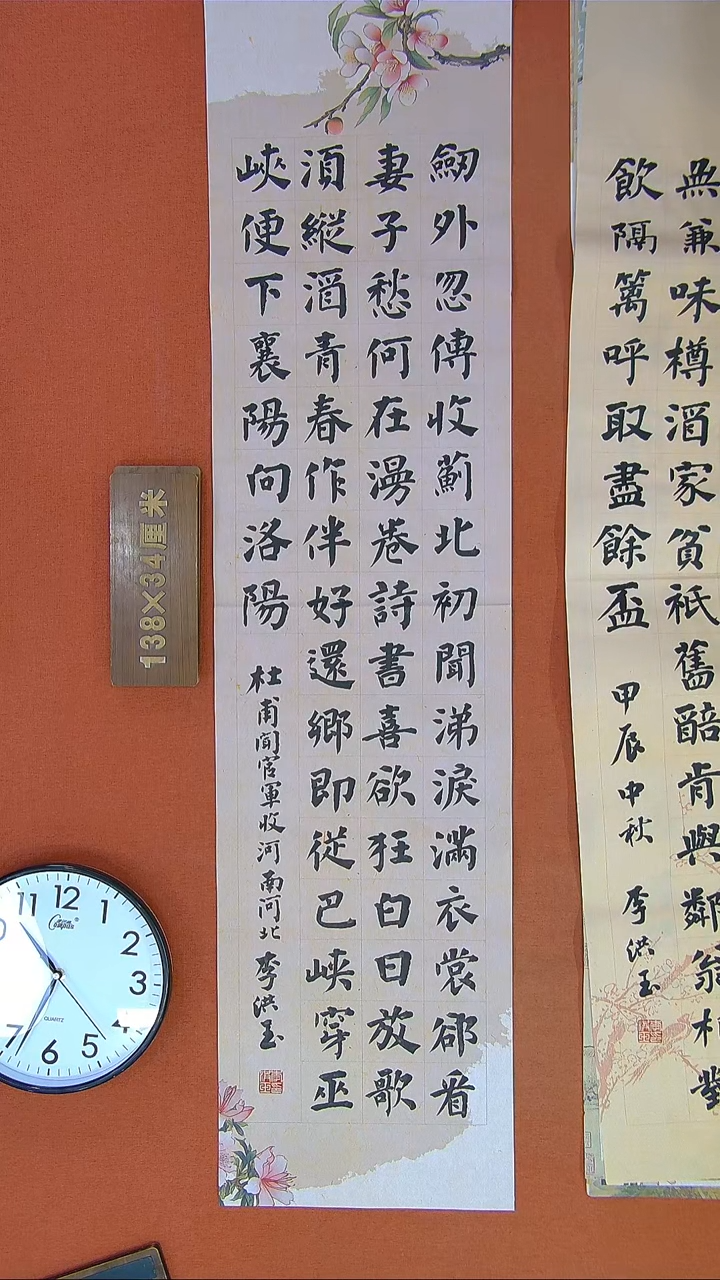 無兼味樽酒家貧衹舊醅肯與鄰翁相對
飲隔籬呼取盡餘盃
甲辰中秋 李洪玉
劒外忽傳收薊北初聞涕淚滿衣裳卻看
妻子愁何在漫卷詩書喜欲狂白日放歌
須縱酒青春作伴好還鄉即從巴峽穿巫
峽便下襄陽向洛陽
杜甫聞官軍收河南河北 李洪玉
138×34厘米
11 12 1 2 3 4 5 6 7
QUARTZ